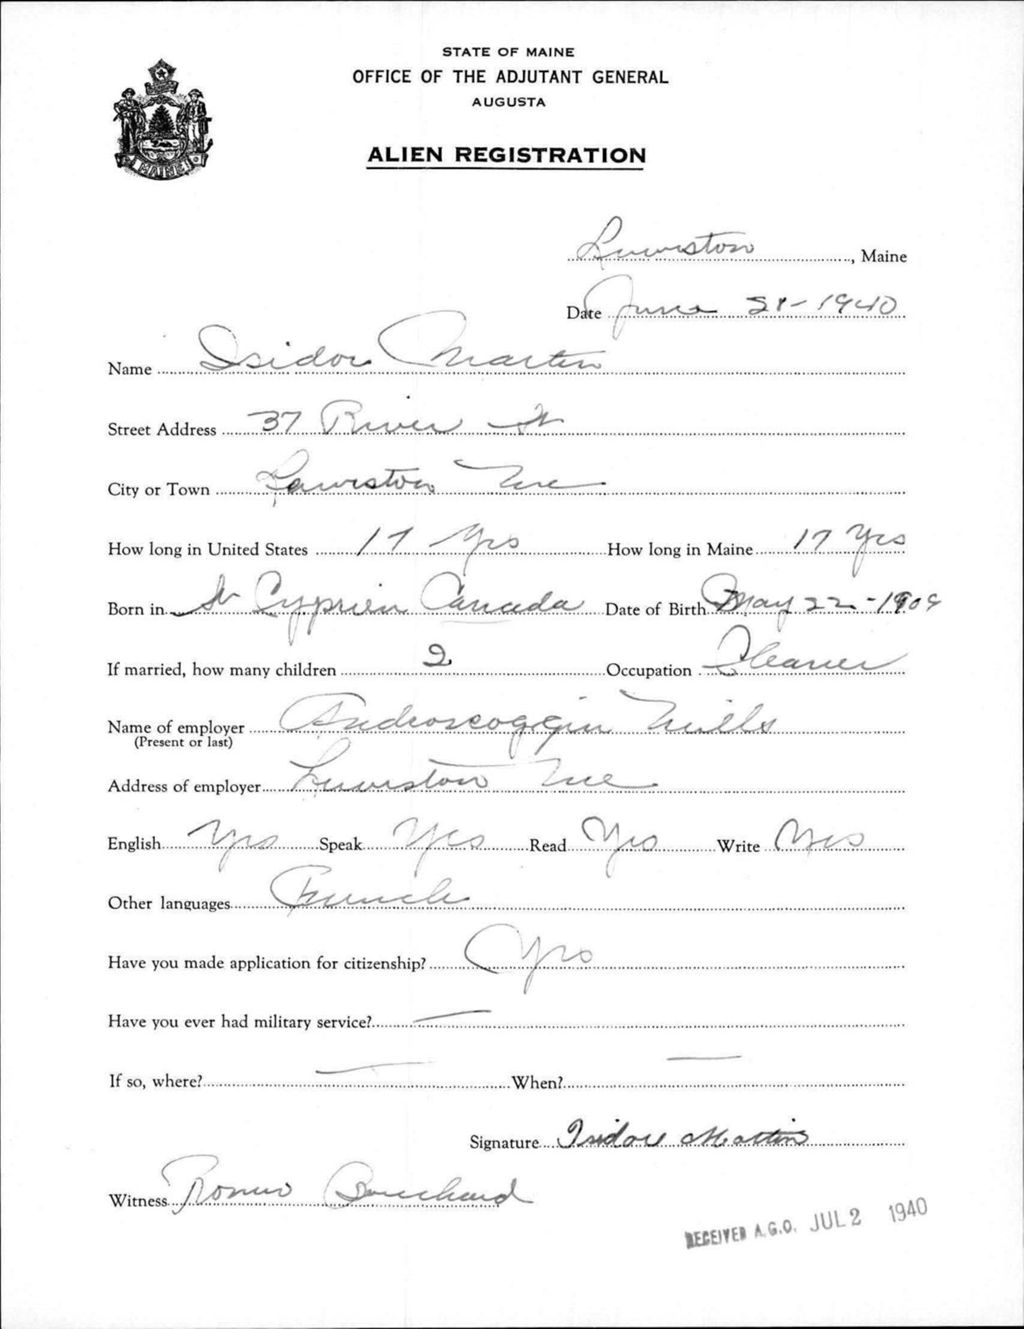 STATE OF MAINE
OFFICE OF THE ADJUTANT GENERAL
AUGUSTA
ALIEN REGISTRATION
MAINE
Lewiston, Maine
Date June 28-1940
Name Isidor Martin
Street Address 37 River St
City or Town Lewiston Me
How long in United States 17 Yrs How long in Maine 17 Yrs
Born in St Cyprien Canada Date of Birth May 22-1909
If married, how many children 2 Occupation Cleaner
Name of employer Androscoggin Mills
(Present or last)
Address of employer Lewiston Me
English Yes Speak Yes Read Yes Write Yes
Other languages French
Have you made application for citizenship? Yes
Have you ever had military service? —
If so, where? — When? —
Signature Isidore Martin
Witness Romeo Bouchard
RECEIVED A.G.O. JUL 2 1940